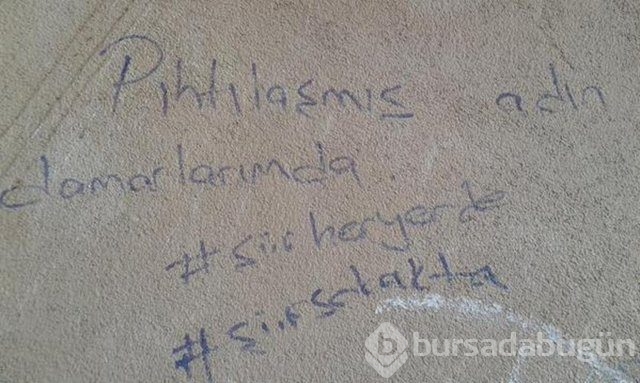 Pıhtılaşmış adın
damarlarımda.
#şiirheryerde
#şiirsokakta
bursadabugün